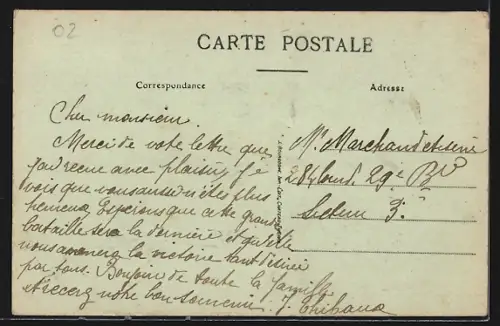 02
CARTE POSTALE
Correspondance
Adresse
Cher monsieur
Merci de votre lettre que
j'ai recue avec plaisir, je
vois que vous aussi n'étes plus
Esperons que cette grande
bataille sera la dernière et qu'elle
nous amenera la victoire tant désirée
par tous. Bonjour de toute la famille
et recevez notre bon souvenir. J. Thibaud
Mr Marchand
284 29e
Secteur